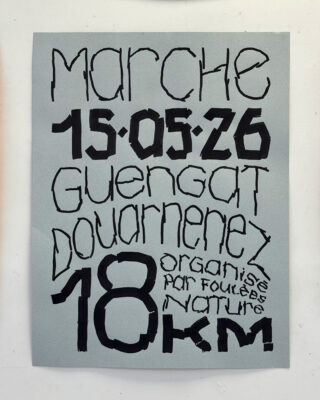 MARCHE
15·05·26
GUENGAT
DOUARNENEZ
18KM
ORGANISÉ
PAR FOULÉES
NATURE